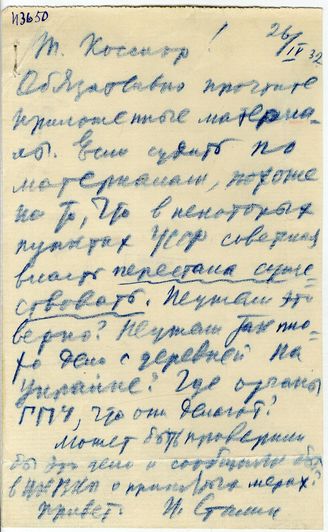 И3650
26/IV 32
Т. Коссиор!
Обязательно прочтите
приложенные материа-
лы. Если судить по
материалам, похоже
на то, что в некоторых
пунктах УССР советская
власть перестала суще-
ствовать. Неужели это
верно? Неужели так пло-
хо дело с деревней на
Украине? Где органы
ГПУ, что они делают?
Может быть проверили
бы это дело и сообщили бы
в ЦК ВКП о принятых мерах?
Привет. И. Сталин